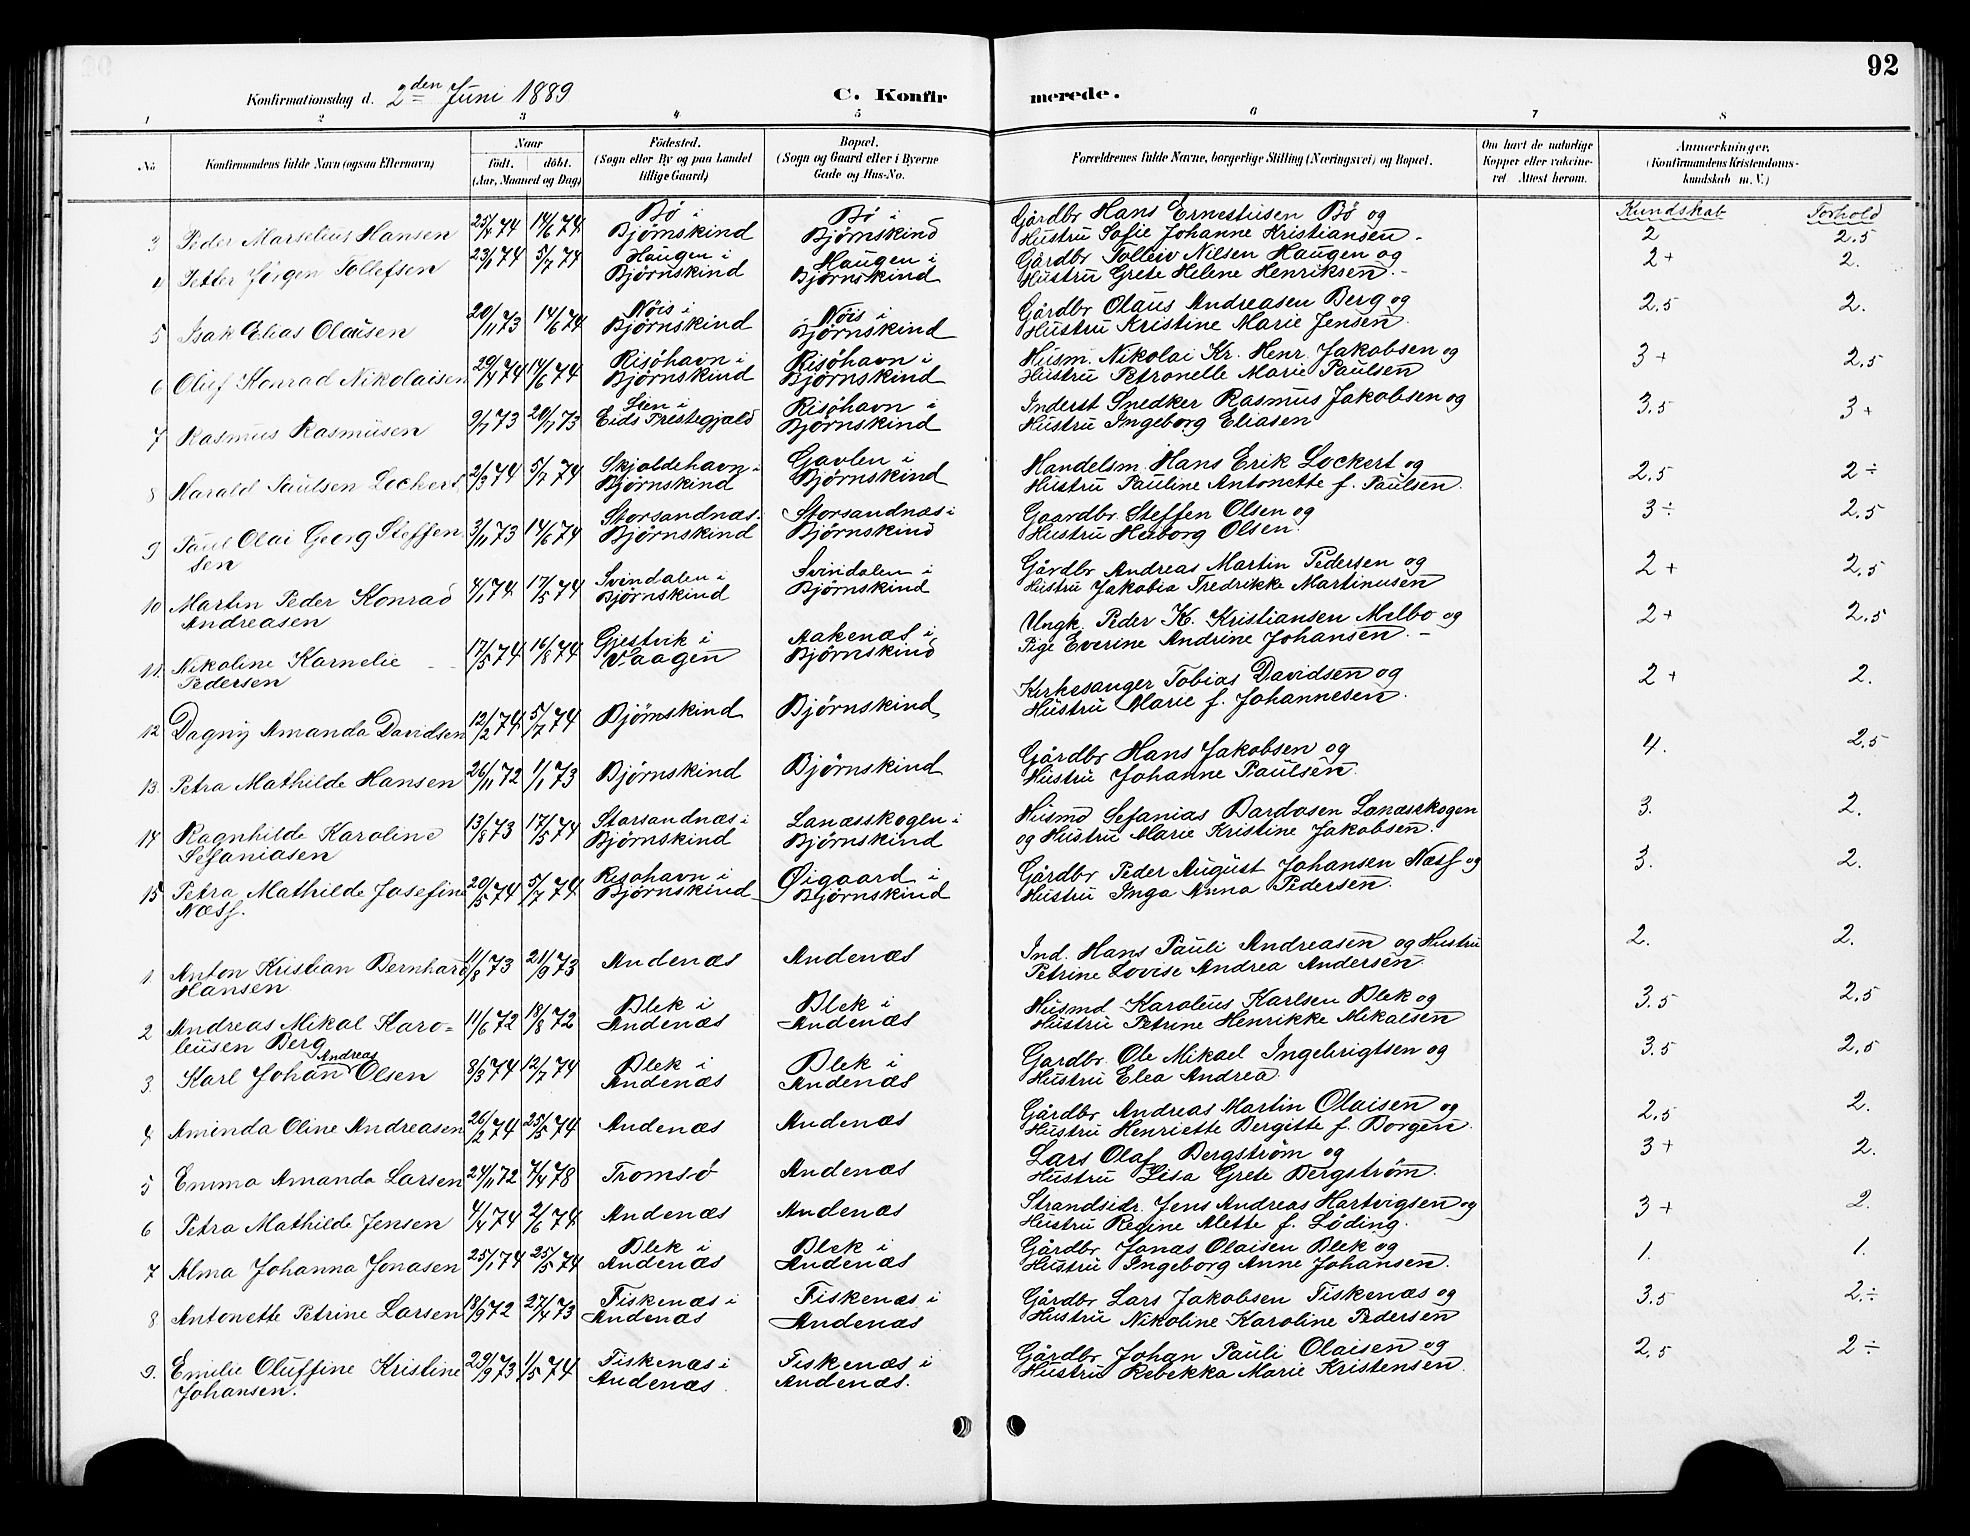 92
Konfirmationsdag d. 2den Juni 1889
C. Konfirmerede.
1 2 3 4 5 6 7 8
No
Konfirmandens fulde Navn (ogsaa Efternavn)
Naar
født. døbt.
(Aar, Maaned og Dag)
Fødested.
(Sogn eller By og paa Landet
tillige Gaard)
Bopæl.
(Sogn og Gaard eller i Byerne
Gade og Hus-No.
Forældrenes fulde Navne, borgerlige Stilling (Næringsvei) og Bopæl.
Om havt de naturlige
Kopper eller vakcine-
ret. Attest herom.
Anmærkninger.
(Konfirmandens Kristendoms-
kundskab m. V.)
Kundskab Forhold
3 Peder Marselius Hansen 25/2 74 14/6 74 Bö i Björnskind Bö i Björnskind Gårdbr Hans Ernestusen Bö og 2 2,5
Hustru Sofie Johanne Kristiansen
4 Petter Jörgen Tollefsen 23/1 74 5/7 74 Haugen i Björnskind Haugen i Björnskind Gårdbr Tolleiv Nilsen Haugen og 2+ 2.
Hustru Grete Helene Henriksen.
5 Isak Elias Olaüsen 20/11 73 14/6 74 Nöis i Björnskind Nöis i Björnskind Gårdbr Olaus Andreasen Berg og 2,5 2.
Hustru Kristine Marie Jensen.
6 Oluf Konrad Nikolaisen 29/4 74 14/6 74 Risöhavn i Björnskind Risöhavn i Björnskind Husm. Nikolai Kr. Henr. Jakobsen og 3+ 2,5
Hustru Petronelle Marie Paulsen
7 Rasmus Rasmusen 9/7 73 20/7 73 Sten i Eids Prestegjæld Risöhavn i Björnskind Inderst Snedker Rasmus Jakobsen og 3.5 3+
Hustru Ingeborg Eliasen
8 Harald Paulsen Lockert 2/3 74 5/7 74 Skjoldehavn i Björnskind Gavlen i Björnskind Handelsm. Hans Erik Lockert og 2,5 2÷
Hustru Pauline Antonette f. Paulsen.
9 Paul Olai Georg Steffen 3/11 73 14/6 74 Storsandnæs. Björnskind Storsandnæs i Björnskind Gaardbr. Steffen Olsen og 3÷ 2.5
sen Hustru Heiborg Olsen.
10 Martin Peder Konrad 4/1 74 17/5 74 Svindalen i Björnskind Svindalen i Björnskind Gårdbr Andreas Martin Pedersen og 2+ 2,5
Andreasen Hustru Jakobia Fredrikke Martinusen
11. Nikoline Kornelie 17/5 74 16/8 74 Gjestvik i Vaagen Aakenæs i Björnskind Ungk. Peder K. Kristiansen Melbo og 2+ 2,5
Pedersen Pige Everine Andrine Johansen.
12 Dagny Amanda Davidsen 12/2 74 5/7 74 Björnskind Björnskind Kirkesanger Tobias Davidsen og 2+ 2.
Hustru Marie f. Johannesen.
13. Petra Mathilde Hansen 26/11 72 1/1 73 Björnskind Björnskind Gårdbr Hans Jakobsen og 4. 2,5
Hustru Johanne Paulsen.
14 Ragnhilde Karoline 13/8 73 17/5 74 Storsandnæs i Björnskind Lanæsskogen i Björnskind Husmd Sefanias Bardosen Lanæsskogen 3. 2.
Sefaniasen og Hustru Marie Kristine Jakobsen.
15 Petra Mathilde Josefine 20/5 74 5/7 74 Risøhavn i Björnskind Øigaard i Björnskind Gårdbr Peder August Johansen Næss og 3. 2.
Næss. Hustru Inga Anna Pedersen.
1 Anton Kristian Bernhard 11/8 73 21/9 73 Andenæs Andenæs Ind. Hans Pauli Andreasen og Hustru 2. 2.
Hansen Petrine Lovise Andrea Andersen.
2 Andreas Mikal Karo- 11/6 72 18/8 72 Blek i Andenæs Blek i Andenæs Husmd Karolius Karlsen Blek og 3.5 2,5
leusen Berg Hustru Petrine Henrikke Mikalsen
3. Karl Johan Andreas Olsen 8/3 74 12/7 74 Blek i Andenæs Blek i Andenæs Gardbr. Ole Mikael Ingebrigtsen og 3.5 2,5
Hustru Elea Andrea.
4 Aminda Oline Andreasen 26/2 74 25/5 74 Andenæs Andenæs Gårdbr Andreas Martin Olaisen og 2,5 2.
Hustru Henriette Bergitte f. Borgen.
5 Emma Amanda Larsen 24/11 72 7/4 78 Tromsö Andenæs Lars Olaf Bergström og 3+ 2.
Hustru Lisa Grete Bergström.
6 Petra Mathilde Jensen 4/4 74 2/6 74 Andenæs Andenæs Strandsidr. Jens Andreas Hartvigsen og 3+ 2.
Hustru Regine Alette f. Löding.
7 Alma Johanna Jonasen 25/1 74 25/5 74 Blek i Andenæs Blek i Andenæs Gårdbr Jonas Olaisen Blek og 1. 1.
Hustru Ingeborg Anne Johansen.
8 Antonette Petrine Larsen 18/9 72 27/4 73 Fiskenæs i Andenæs Fiskenæs i Andenæs Gårdbr Lars Jakobsen Fiskenæs og 3.5 2.÷
Hustru Nikoline Karoline Pedersen
9. Emilie Oluffine Kristine 29/9 73 1/5 74 Fiskenæs i Andenæs. Fiskenæs i Andenæs. Gårdbr Johan Pauli Olaisen og 2,5 2÷
Johansen. Hustru Rebekka Marie Kristensen.